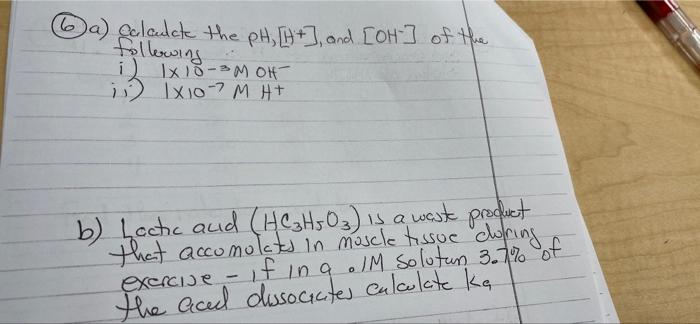 6 a) Calculate the pH, [H+], and [OH-] of the
following
i) 1x10-3 M OH-
ii) 1x10-7 M H+
b) Lactic acid (HC3H5O3) is a wast product
that accomolates in moscle tissue during
exercise - if in a .1M Solution 3.7% of
the aced dissociates calculate Ka